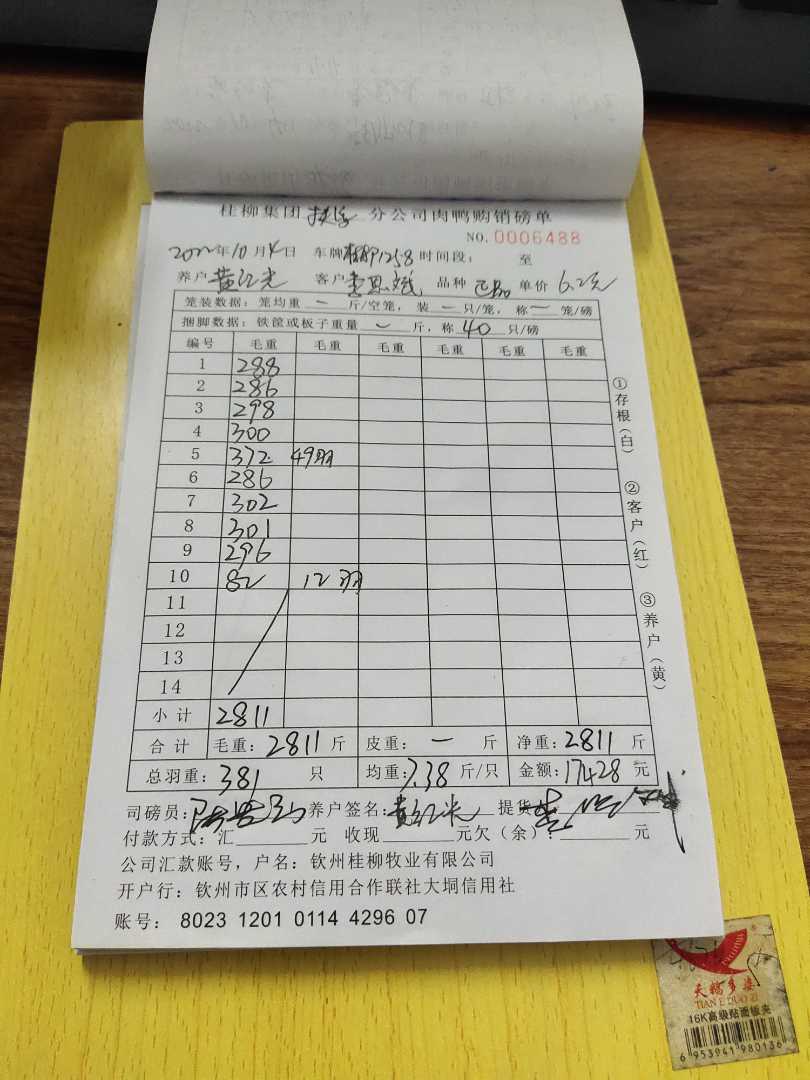 桂柳集团 分公司肉鸭购销磅单
NO. 0006488
2022年10月4日 车牌 1258 时间段： 至
养户 黄红光 客户 李恩斌 品种 单价 6.2元
笼装数据：笼均重 — 斤/空笼，装 — 只/笼，称 — 笼/磅
捆脚数据：铁筐或板子重量 — 斤，称 40 只/磅
编号 毛重 毛重 毛重 毛重 毛重 毛重
1 288
2 286
3 298
4 300
5 372 49羽
6 286
7 302
8 301
9 296
10 82 12羽
11
12
13
14
小计 2811
合计 毛重：2811 斤 皮重： — 斤 净重：2811 斤
总羽重：381 只 均重：7.38 斤/只 金额：17428 元
①存根（白）
②客户（红）
③养户（黄）
司磅员： 养户签名：黄红光 提货
付款方式：汇______元 收现______元欠（余）：______元
公司汇款账号，户名：钦州桂柳牧业有限公司
开户行：钦州市区农村信用合作联社大垌信用社
账号： 8023 1201 0114 4296 07
天鹅多姿
TIAN E DUO ZI
16K高级贴面板夹
6 953941 980136